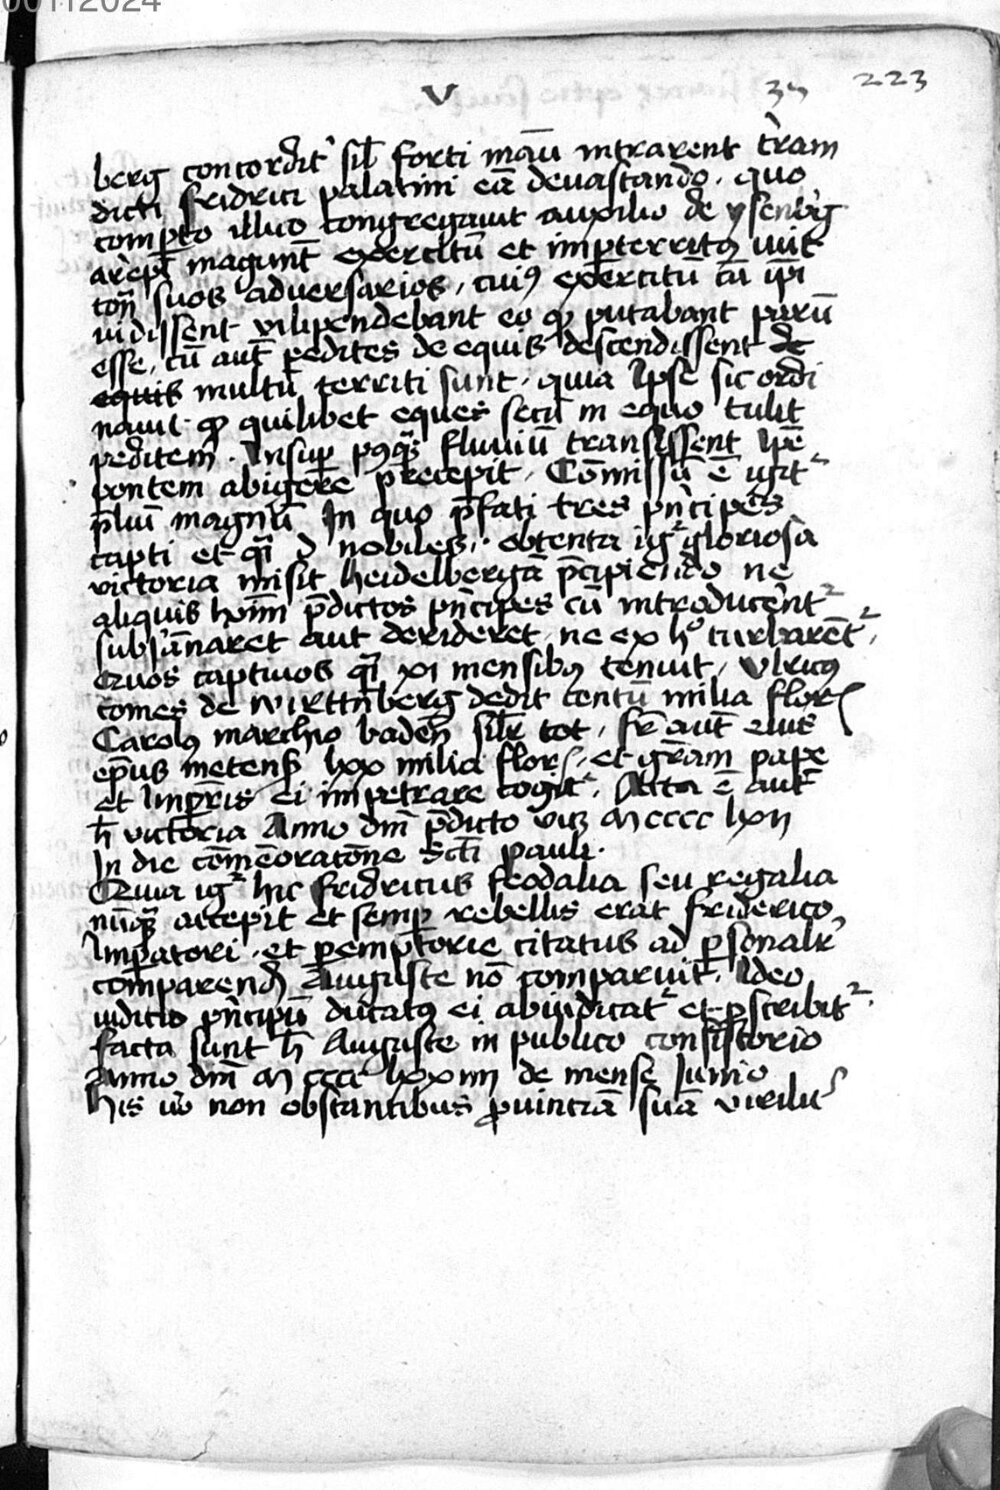 00112024
V 35 223
berg concordit' sil' forti manū intrarent t'ram
dicti fridrici palatini eā deuastando . quo
comp̱to illico congregauit auxilio de ysenb'g
arēpī magunt̄ exercitū et imp̱territ9 iuit
cont̄ suos aduersarios , cui9 exercitū cū ip̄i
uidissent vilipendebant eo qꝫ putabant paruū
esse , cū aut̄ pedites de equis descendissent de
equis multū territi sunt , quia ipse sic ordi
nauit qꝫ quilibet eques secū in equo tulit
peditem . Insup̱ p9qꝫ fluuiū transissent ip̄e
pontem abigere precepit , Com̄issū ē igit²
p̄liū magnū In quo p̄fati tres pn̄cipes
capti et q̄i d nobiles , obtenta ig² gloriosa
victoria misit heidelbergā p̄cipiendo ne
aliquis hoīm p̄dictos pn̄cipes cū introducēnt²
subsān̄aret aut derideret , ne ex h° turbarēt² ,
Quos captiuos q̄i xi mensib9 tenuit , Vlric9
comes de wirttn̄berg dedit centū milia flor
Carol9 marchio baden̄ sil'r tot , fr̄ aut̄ eius
ep̄us metens̄ lxx milia flor , et gr̄am pape
et Imp̱ris ei impetrare cogit² . Acta ē aut̄
h̄ victoria Anno dm̄ p̄dicto vicꝫ M cccc lxii
In die com̄ēoratōne Sc̄ti pauli .
Quia ig² hic fridricus feodalia seu regalia
nūqꝫ accepit et semp̱ rebellis erat friderico
Imp̱atori . et peremptorie citatus ad p̱sonalr'
comparend̄ Auguste nō comparuit , Ideo
iudicio pn̄cipū ducat9 ei abiudicat² et p̱scribit² .
facta sunt h̄ Auguste in publico consistorio
Anno dm̄ M cccc lxxiiii de mense Junio
His v̄o non obstantibus ꝓuinciā suā virilit'